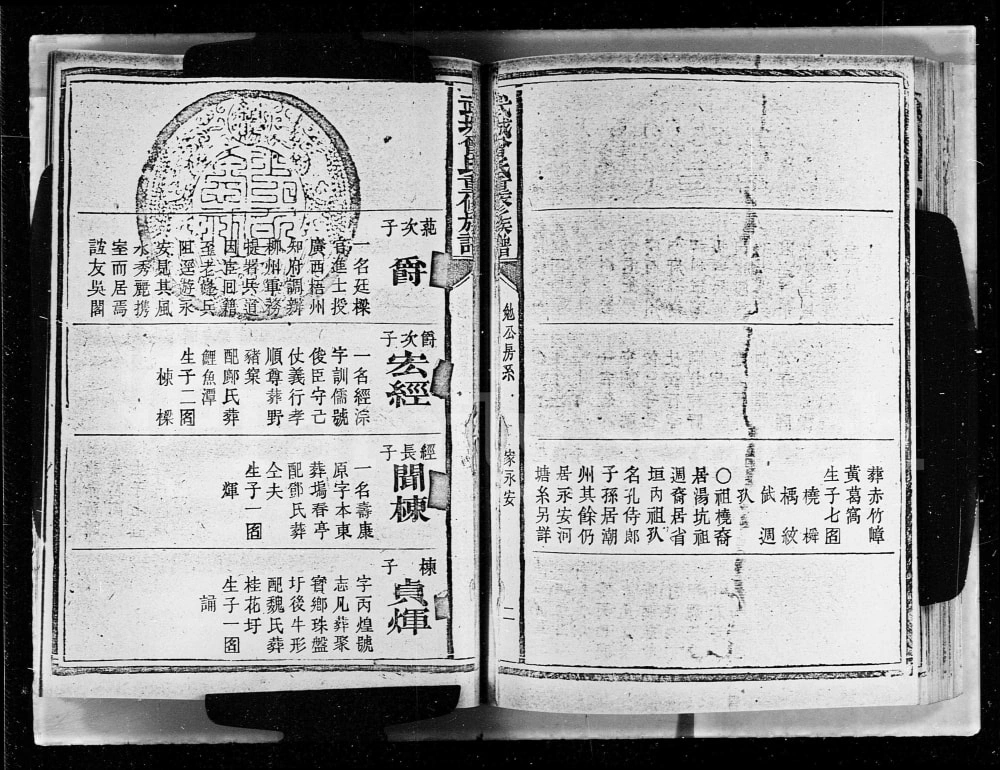 葬赤竹嶂
黄葛窩
生子七圄
橈 橓
楀 紋
㦿 週
㰟
○祖橈裔
居湯坑祖
週裔居省
垣内祖㰟
名孔侍郎
子孫居潮
州其餘仍
居永安河
塘糸另詳
武城曾氏重修族譜
勉公房系
家永安
二
武城曾氏重修族譜
蕘次子
爵
一名廷樑
官進士授
廣西梧州
知府調辦
柳州軍務
提署兵道
因宦回籍
至老隆兵
阻逕遊永
安見其風
水秀麗携
室而居焉
誼友吳閣
爵次子
宏經
一名經淙
字訓儒號
俊臣守己
仗義行孝
順尊葬野
豬窠
配鄺氏葬
鯉魚潭
生子二圄
棟 樑
經長子
聞棟
一名壽康
原字本東
葬塢春亭
配鄧氏葬
仝夫
生子一圄
輝
棟子
貞煇
字丙煌號
志凡葬聚
寳鄉珠盤
圩後牛形
配魏氏葬
桂花圩
生子一圄
誦